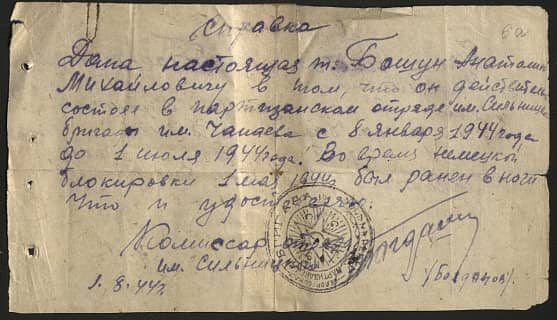 Справка
6а
Дана настоящая т. Бошун Анатолию
Михайловичу в том, что он действитель
состоял в партизанском отряде им. Сильницкого
бригады им. Чапаева с 8 января 1944 года
до 1 июля 1944 года. Во время немецкой
блокировки 1 мая 1944 г был ранен в ноги
Что и удост
Комиссар отряда
им. Сильницк
(Богданов).
1. 8. 44 г